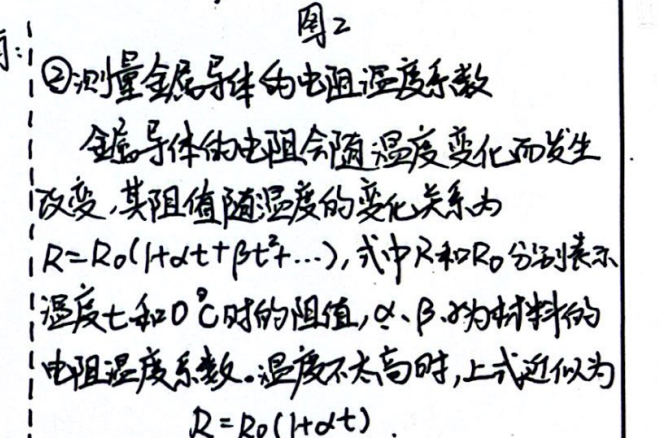 图2
②测量金属导体的电阻温度系数
金属导体的电阻会随温度变化而发生
改变,其阻值随温度的变化关系为
R=R₀(1+αt+βt²+…),式中R和R₀分别表示
温度t和0℃时的阻值,α、β、γ为材料的
电阻温度系数。温度不太高时,上式近似为
R=R₀(1+αt).